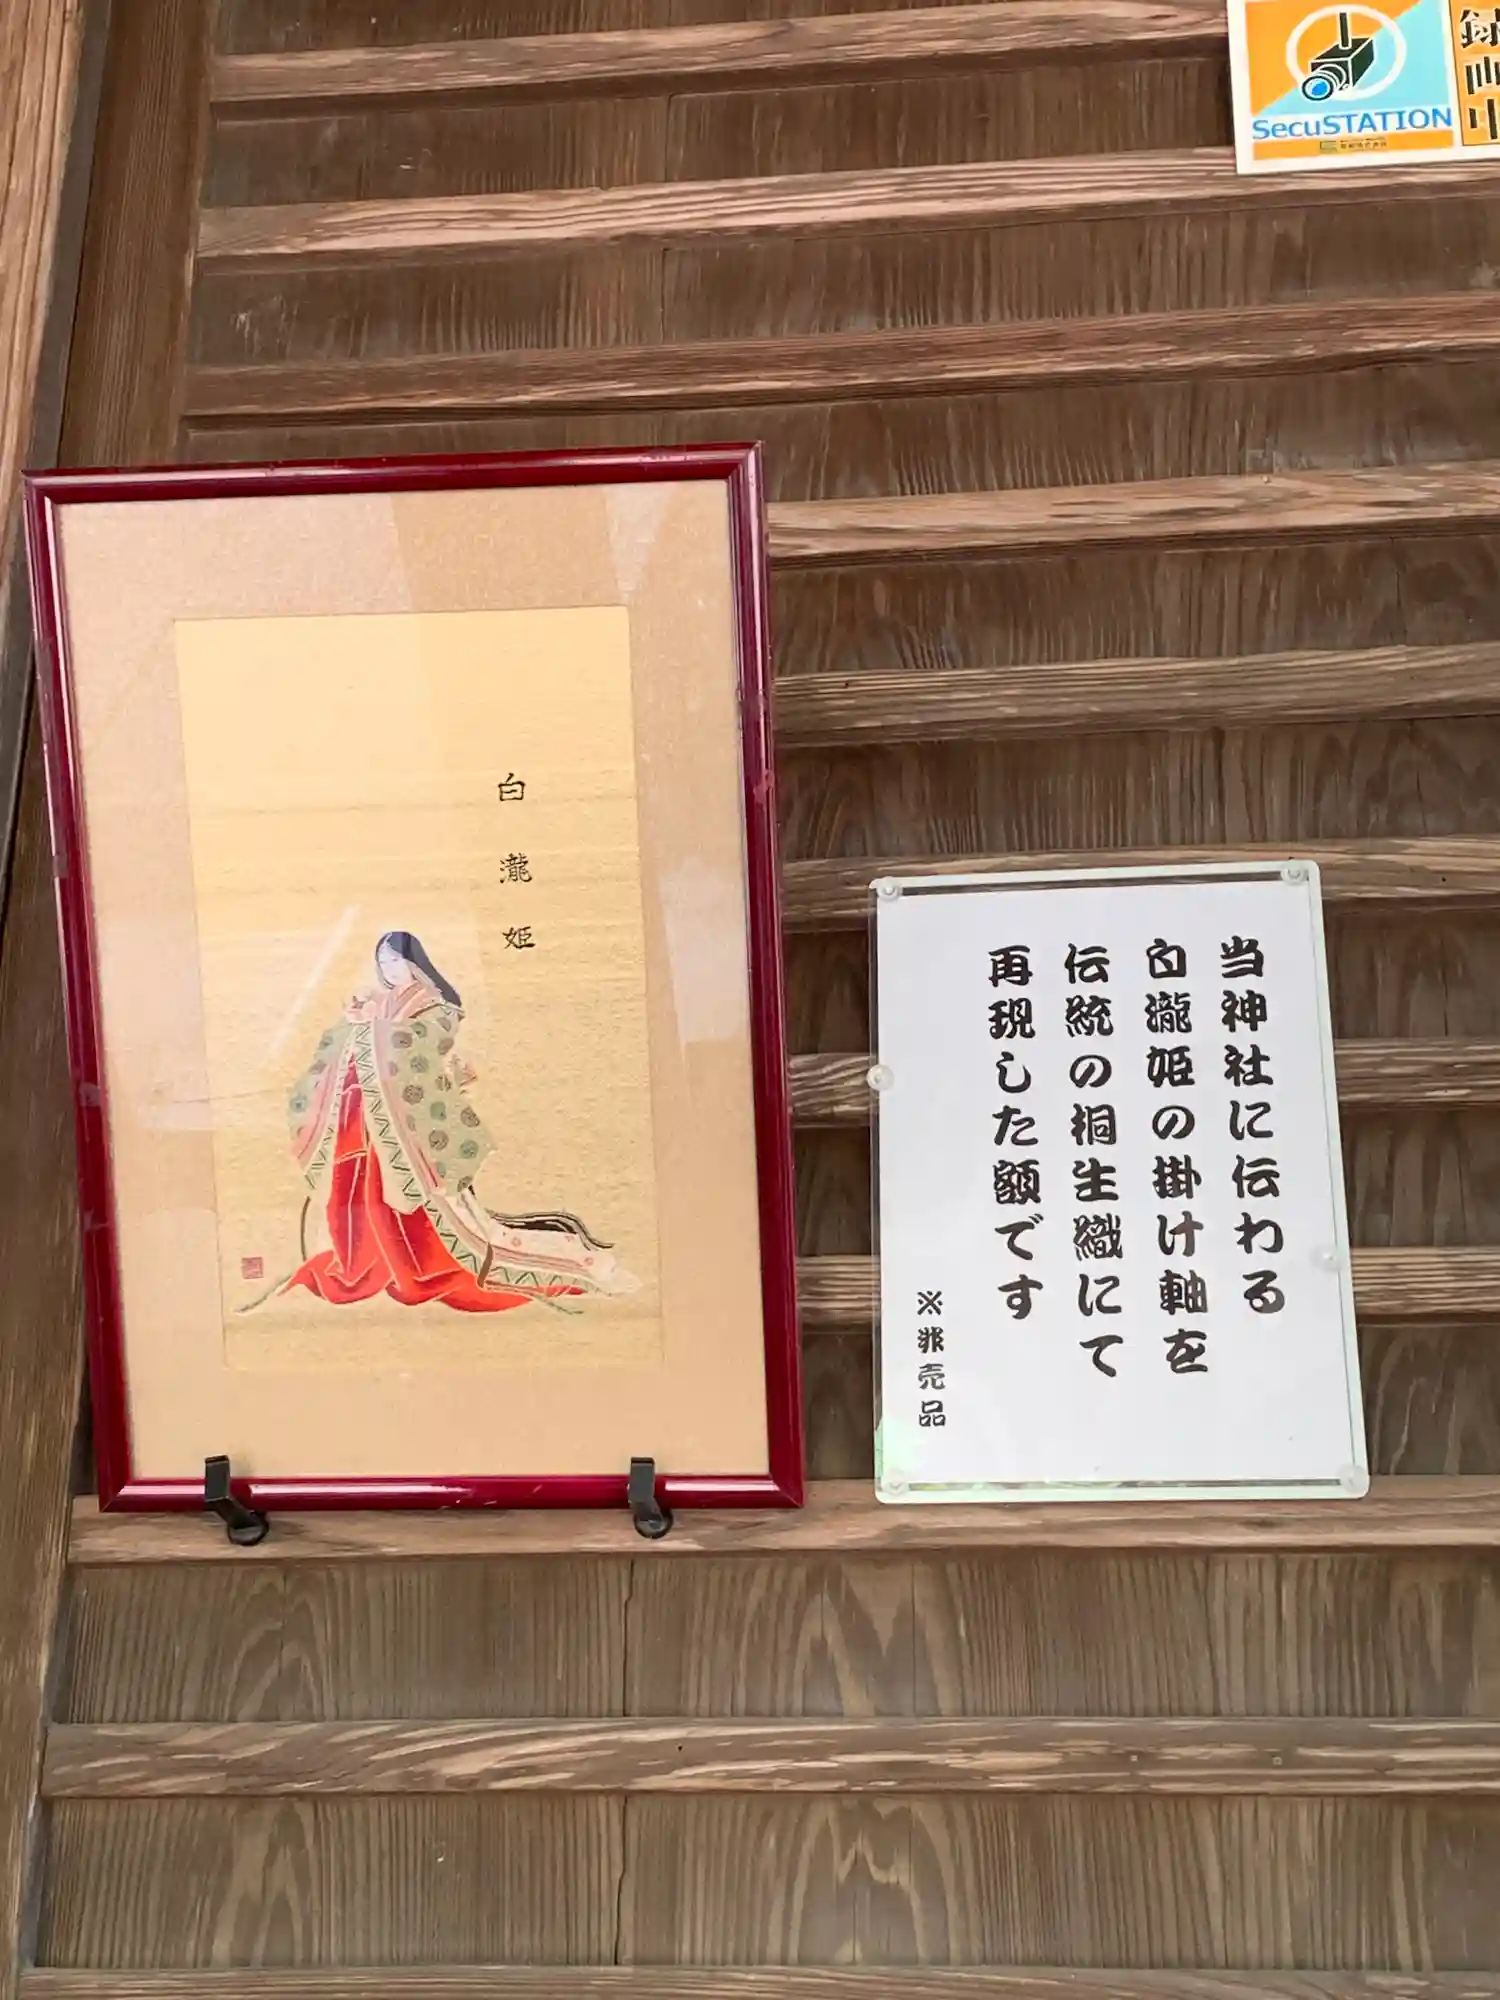 録画中
SecuSTATION
白瀧姫
当神社に伝わる
白瀧姫の掛け軸を
伝統の桐生織にて
再現した額です
※非売品